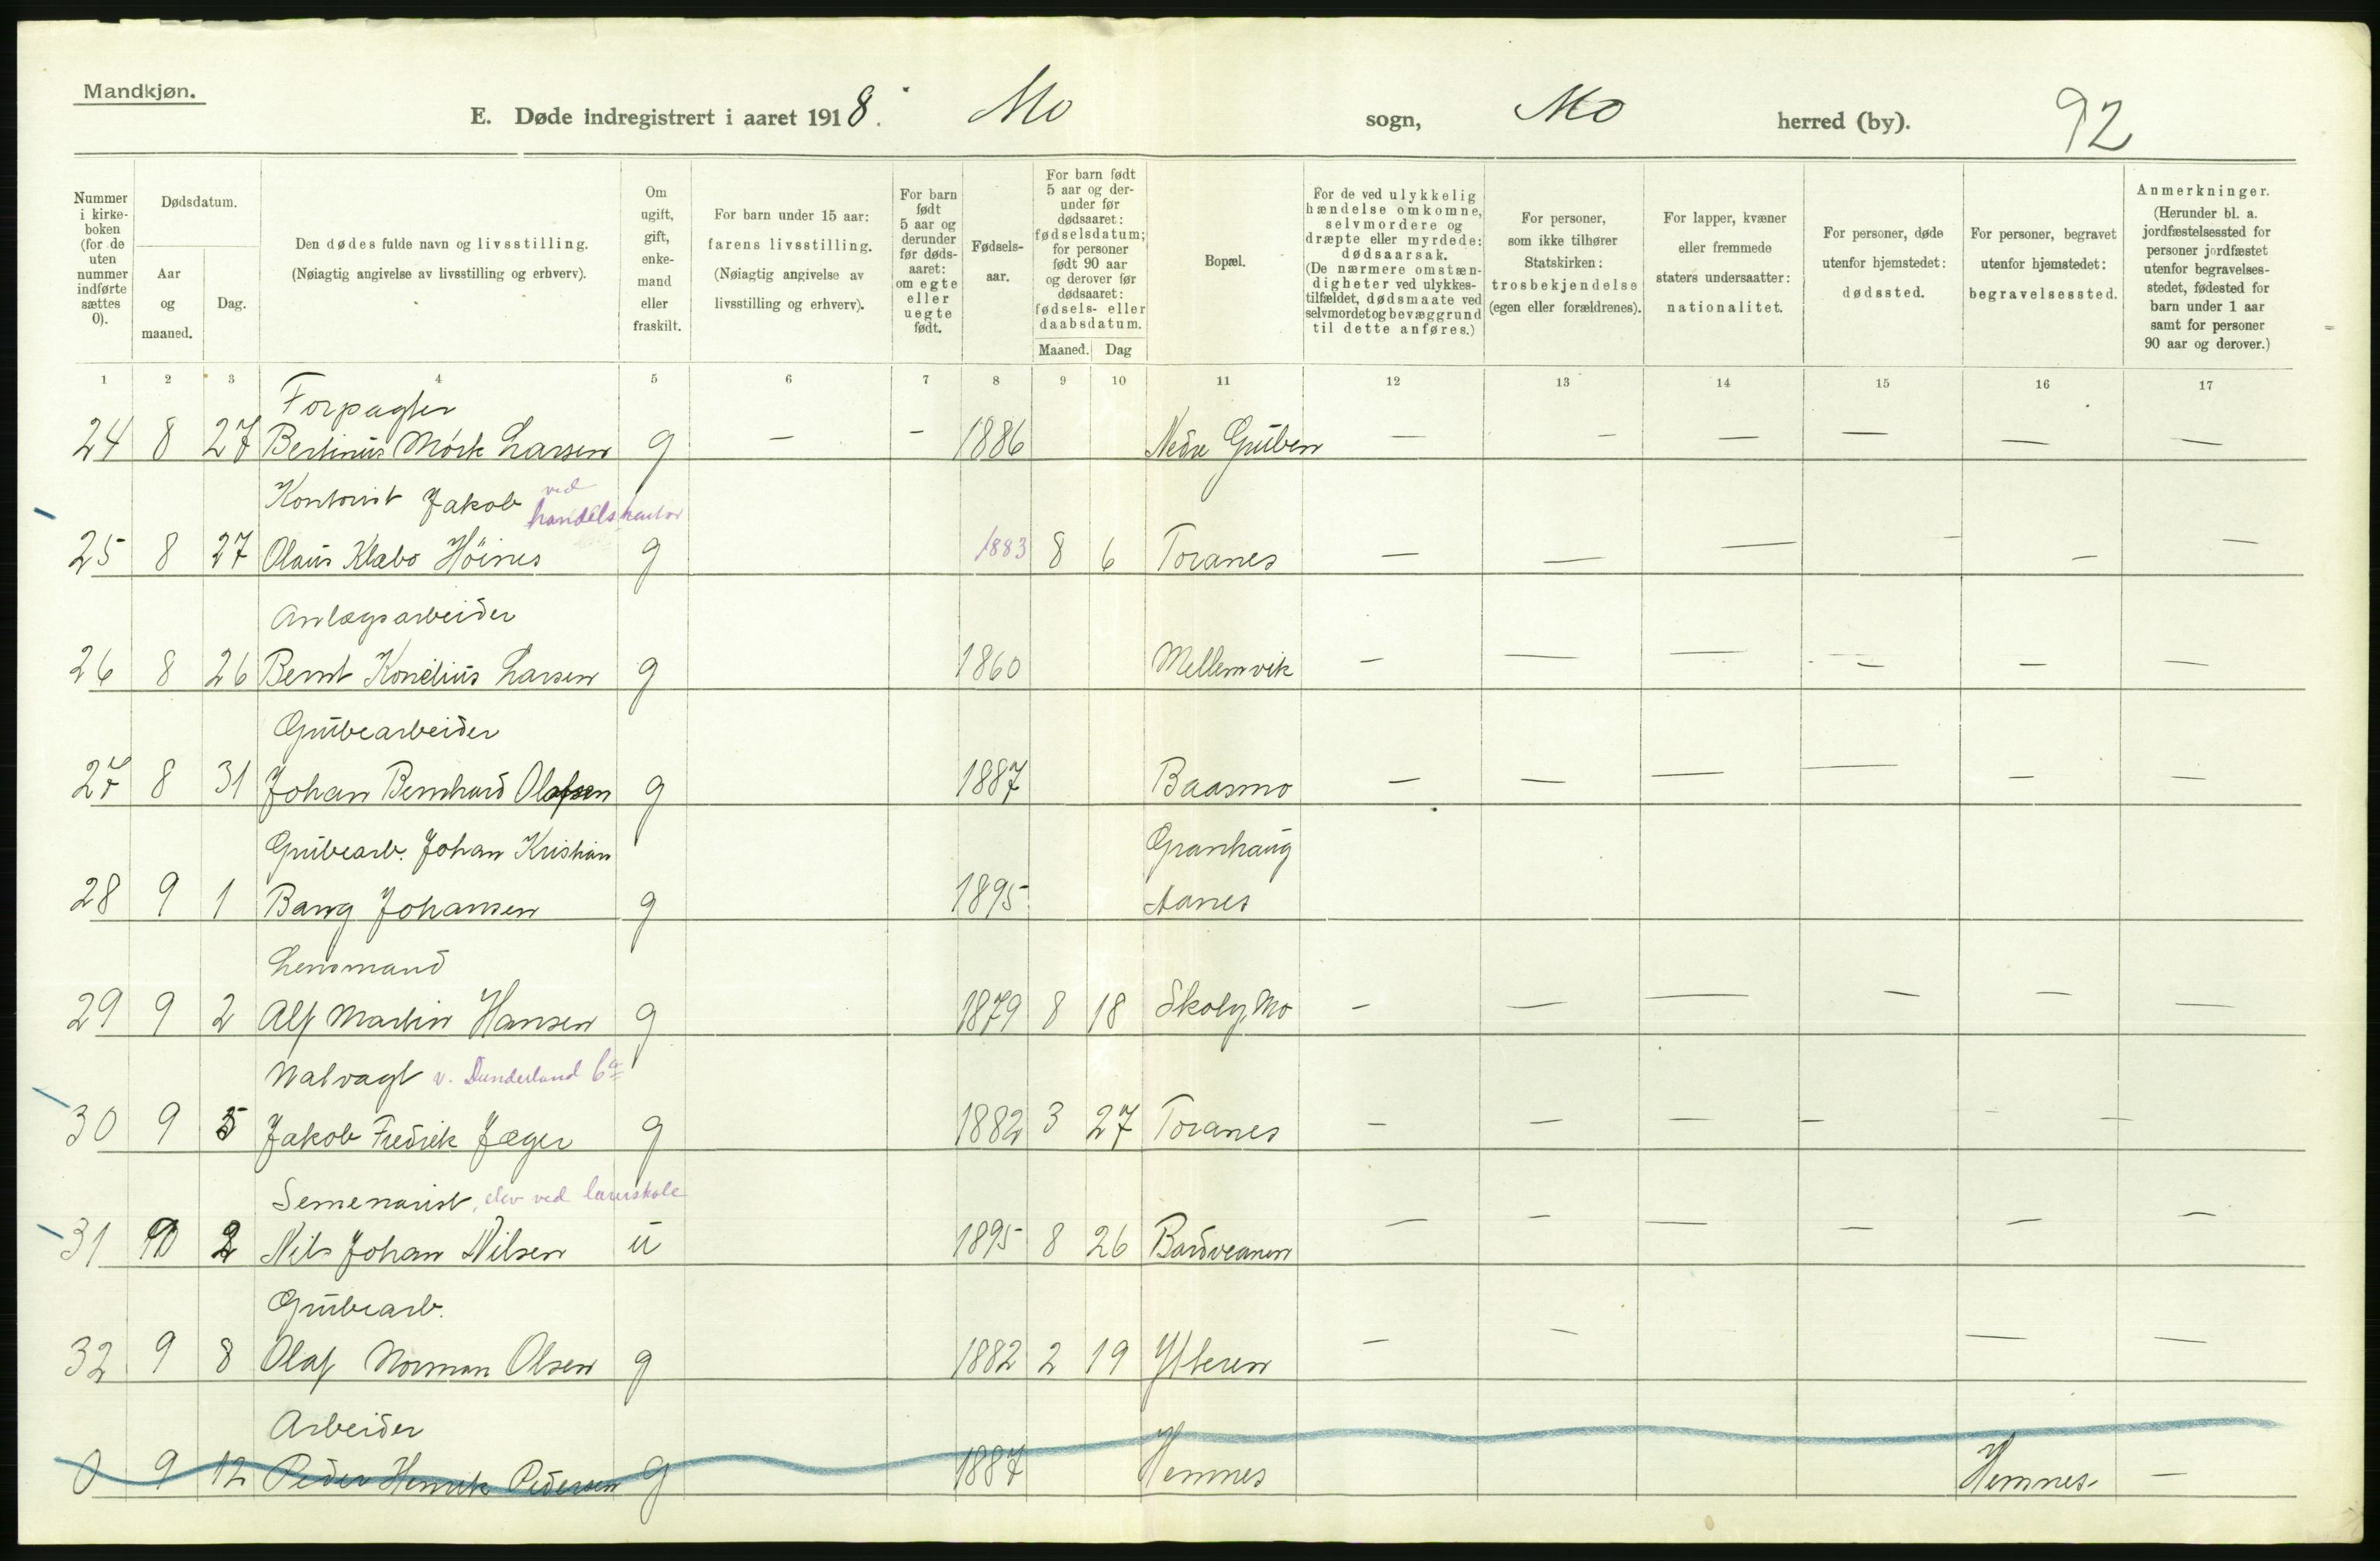 Mandkjøn.
E. Døde indregistrert i aaret 1918. Mo sogn, Mo herred (by). 92
Nummer i kirkeboken (for de uten nummer indførte sættes 0).
Dødsdatum.
Aar og maaned.
Dag.
Den dødes fulde navn og livsstilling.
(Nøiagtig angivelse av livsstilling og erhverv).
Om ugift, gift, enkemand eller fraskilt.
For barn under 15 aar: farens livsstilling.
(Nøiagtig angivelse av livsstilling og erhverv).
For barn født 5 aar og derunder før dødsaaret: om egte eller uegte født.
Fødselsaar.
For barn født 5 aar og derunder før dødsaaret: fødselsdatum; for personer født 90 aar og derover før dødsaaret: fødsels- eller daabsdatum.
Maaned. Dag
Bopæl.
For de ved ulykkelig hændelse omkomne, selvmordere og dræpte eller myrdede: dødsaarsak.
(De nærmere omstændigheter ved ulykkestilfældet, dødsmaate ved selvmordet og bevæggrund til dette anføres.)
For personer, som ikke tilhører Statskirken: trosbekjendelse (egen eller forældrenes).
For lapper, kvæner eller fremmede staters undersaatter: nationalitet.
For personer, døde utenfor hjemstedet: dødssted.
For personer, begravet utenfor hjemstedet: begravelsessted.
Anmerkninger.
(Herunder bl. a. jordfæstelsessted for personer jordfæstet utenfor begravelsesstedet, fødested for barn under 1 aar samt for personer 90 aar og derover.)
1 2 3 4 5 6 7 8 9 10 11 12 13 14 15 16 17
Forpagter
24 8 27 Bertinus Mörk Larsen g – – 1886 Nedre Gruben — – — — — —
Kontorist Jakob ved handelskontor
25 8 27 Olaus Klæbo Höines g 1883 8 6 Toranes — — — – – —
Anlægsarbeider
26 8 26 Bernt Konelius Larsen g 1860 Mellemvik – — — — – —
Grubearbeider
27 8 31 Johan Bernhard Olafsen g 1887 Baasmo — — — — – —
Grubearb. Johan Kristian Granhaug
28 9 1 Bang Johansen g 1895 Aanes
Lensmand
29 9 2 Alf Martin Hansen g 1879 8 18 Skolg. Mo – — — — — —
Malvagt v. Dunderland Co
30 9 5 Jakob Fredrik Jæger g 1882 3 27 Toranes – — — – – —
Semenarist, elev ved lærerskole
31 2 Nils Johan Nilsen u 1895 8 26 — – — — — —
Grubearb.
32 9 8 Olaf Norman Olsen g 1882 2 19 Ytteren – – — —
Arbeider
0 9 12 Peder Henrik Pedersen g 1887 Hemnes Hemnes —